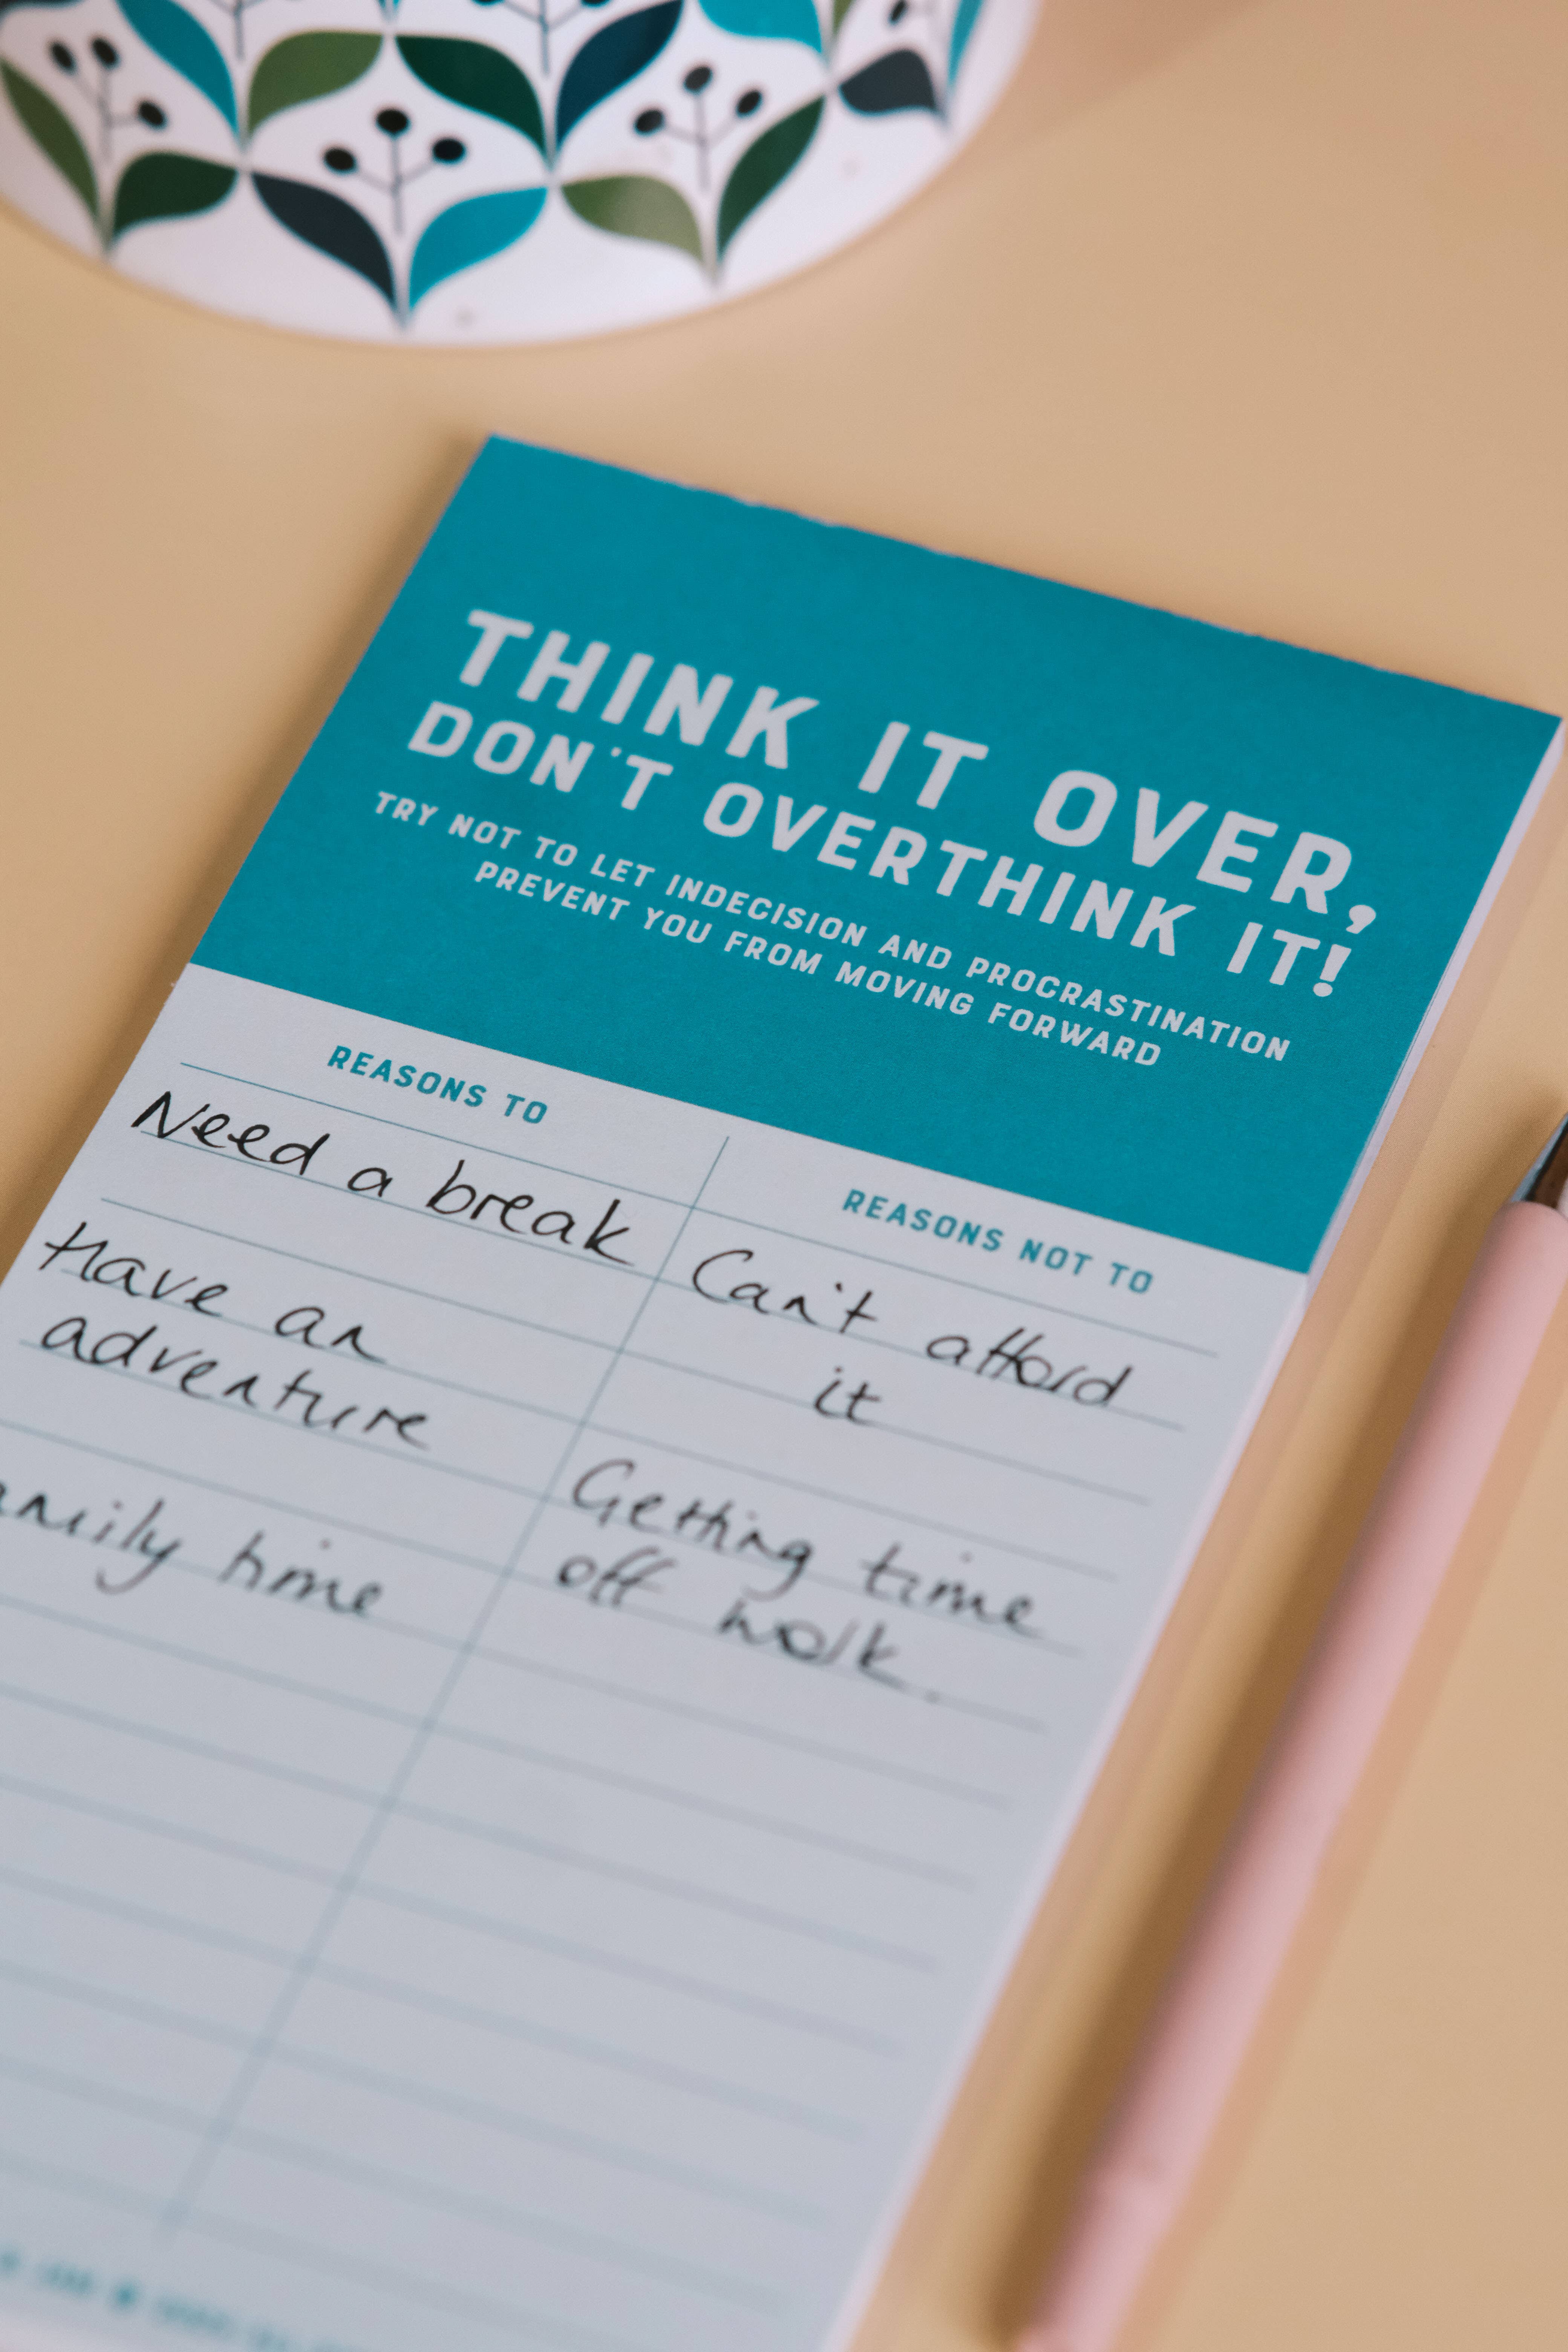 THINK IT OVER,
DON'T OVERTHINK IT!
TRY NOT TO LET INDECISION AND PROCRASTINATION
PREVENT YOU FROM MOVING FORWARD
REASONS TO
Need a break
Have an
adventure
time
REASONS NOT TO
Can't afford
it
Getting time
off work.